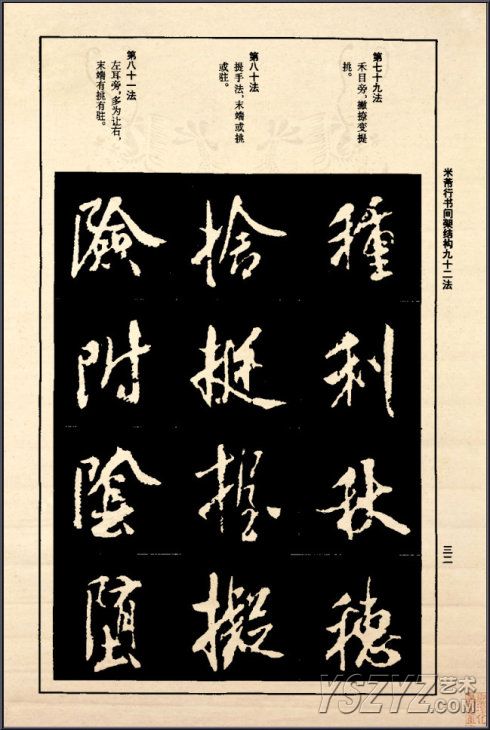 米芾行书间架结构九十二法
三二
第七十九法
禾目旁，撇捺变提
挑。
第八十法
提手法，末端或挑
或驻。
第八十一法
左耳旁，多为让右，
末端有挑有驻。
種利秋穗
捨挺握擬
險附陰堕
YSZYZ艺术